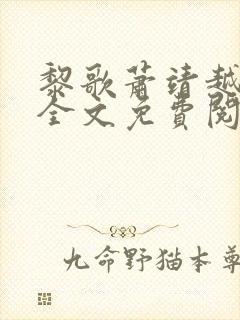 黎歌蕭靖越
全文免費閱
九命野猫本尊